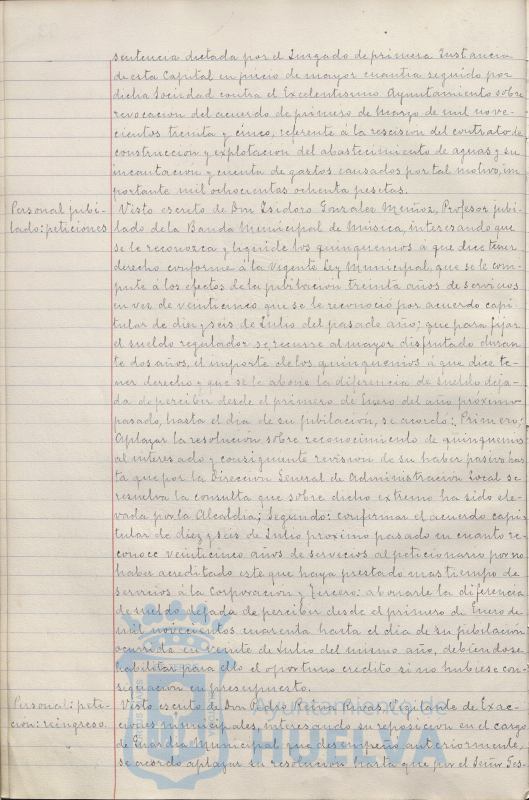 sentencia dictada por el Juzgado de primera Instancia
de esta Capital en juicio de mayor cuantia seguido por
dicha Sociedad contra el Excelentisimo Ayuntamiento sobre
revocacion del acuerdo de primero de Marzo de mil nove-
cientos treinta y cinco, referente á la rescision del contrato de
construccion y explotacion del abastecimiento de aguas y su
incautacion y cuenta de gastos causados por tal motivo, im
portante mil ochocientas ochenta pesetas.
Personal jubi-
lado: peticiones
Visto escrito de Don Isidoro Gonzalez Muñoz, Profesor jubi-
lado de la Banda Municipal de Música, interesando que
se le reconozca y liquide los quinquenios á que dice tener
derecho conforme á la Vigente Ley Municipal, que se le com-
pute á los efectos de la jubilacion treinta años de servicios
en vez de veinticinco que se le reconoció por acuerdo capi
tular de diez y seis de Julio del pasado año; que para fijar
el sueldo regulador se recurra al mayor disfrutado duran
te dos años, el importe de los quinquenios á que dice te-
ner derecho y que se le abone la diferencia de sueldo deja-
da de percibir desde el primero de Enero del año próximo
pasado, hasta el dia de su jubilación, se acordó: Primero:
Aplazar la resolución sobre reconocimiento de quinquenios
al interesado y consiguiente revision de su haber pasivo has
ta que por la Direccion General de Administracion Local se
resuelva la consulta que sobre dicho extremo ha sido ele-
vada por la Alcaldia; Segundo: confirmar el acuerdo capi
tular de diez y seis de Julio próximo pasado en cuanto re-
conoce veinticinco años de servicios al peticionario por no
haber acreditado este que haya prestado mas tiempo de
servicios á la Corporacion y Tercero: abonarle la diferencia
de sueldo dejada de percibir desde el primero de Enero de
mil novecientos cuarenta hasta el dia de su jubilación
ocurrida en veinte de Julio del mismo año, debiendose
habilitar para ello el oportuno credito si no hubiese con-
signacion en presupuesto.
Personal: peti-
ción: reingreso.
Visto escrito de Don Pedro Reina Rivas Vigilante de Exac-
ciones municipales, interesando su reposicion en el cargo
de Guardia Municipal que desempeño anteriormente,
se acordó aplazar su resolucion hasta que por el Señor Ges-
Ayuntamiento de
HUELVA